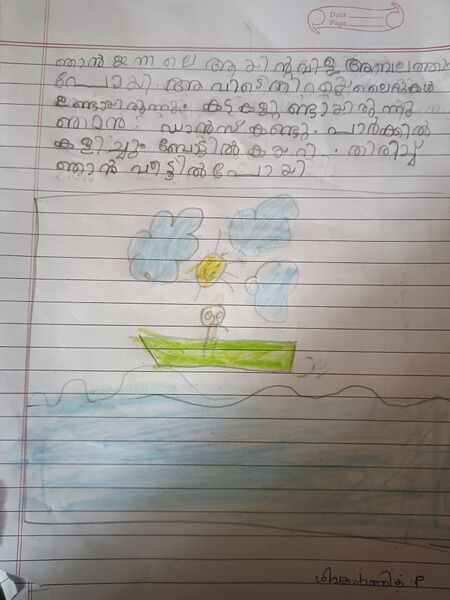 Date
Page
ഞാൻ ഇന്നലെ ആയിൻവിള അമ്പലത്തിൽ
പോയി. അവിടെ നിറയെ ലൈറ്റുകൾ
ഉണ്ടായിരുന്നു. കടകളുണ്ടായിരുന്നു
ഞാൻ ഡാൻസ് കണ്ടു. പാർക്കിൽ
കളിച്ചു. ബോട്ടിൽ കയറി. തിരിച്ച്
ഞാൻ വീട്ടിൽ പോയി
ശിവകാർത്തിക്.P